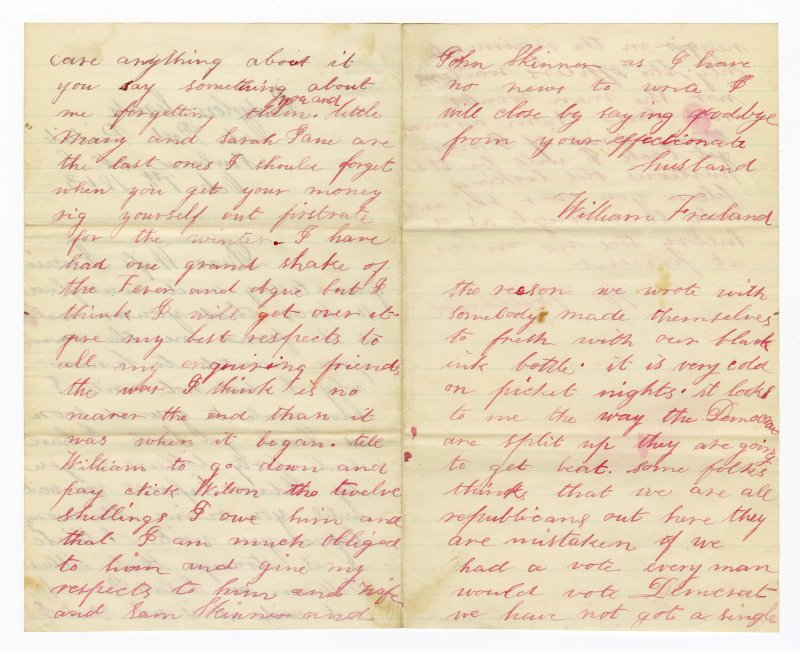 care anything about it
you say something about
you and
me forgetting them. little
Mary and Sarah Jane are
the last ones I should forget
when you get your money
rig yourself out firstrate
for the winter. I have
had one grand shake of
the Fever and ague but I
think I will get over it
give my best respects to
all my enquiring friends
the war I think is no
nearer the end than it
was when it began. tell
William to go down and
pay Nick Wilson the twelve
shillings I owe him and
that I am much obliged
to him and give my
respects to him and wife
and Sam Skinner and
John Skinner as I have
no news to write I
will close by saying goodbye
from your effectionate
husband
William Freeland
the reason we wrote with
somebody made themselves
to fresh with our black
ink bottle. it is very cold
on picket nights. it looks
to me the way the Democrats
are split up they are going
to get beat. some folks
thinks that we are all
republicans out here they
are mistaken if we
had a vote every man
would vote Democrat
we have not got a single